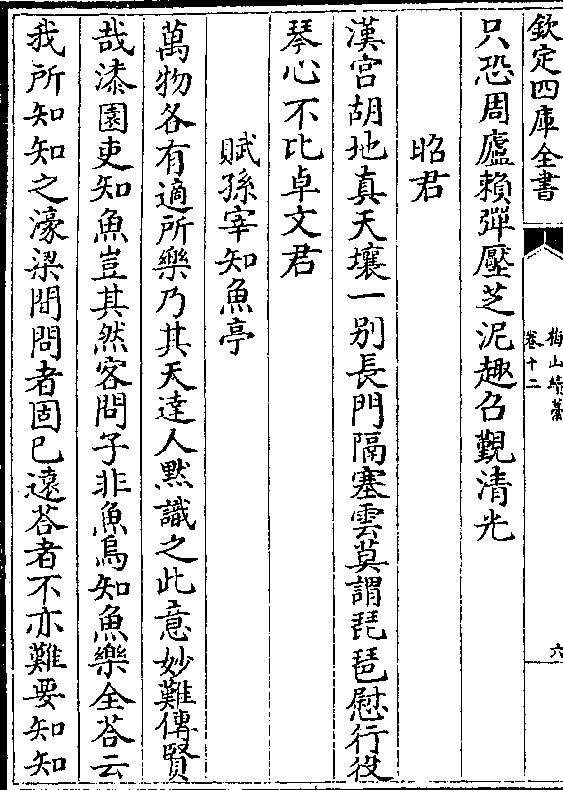 欽定四庫全書
梅山續藁
卷十二
六
只恐周廬賴彈壓芝泥趣召覲清光
昭君
漢宫胡地真天壤一别長門隔塞雲莫謂琵琶慰行役
琴心不比卓文君
賦孫宰知魚亭
萬物各有適所樂乃其天達人黙識之此意妙難傳賢
哉漆園吏知魚豈其然客問子非魚烏知魚樂全荅云
我所知知之濠梁間問者固已遠荅者不亦難要知知